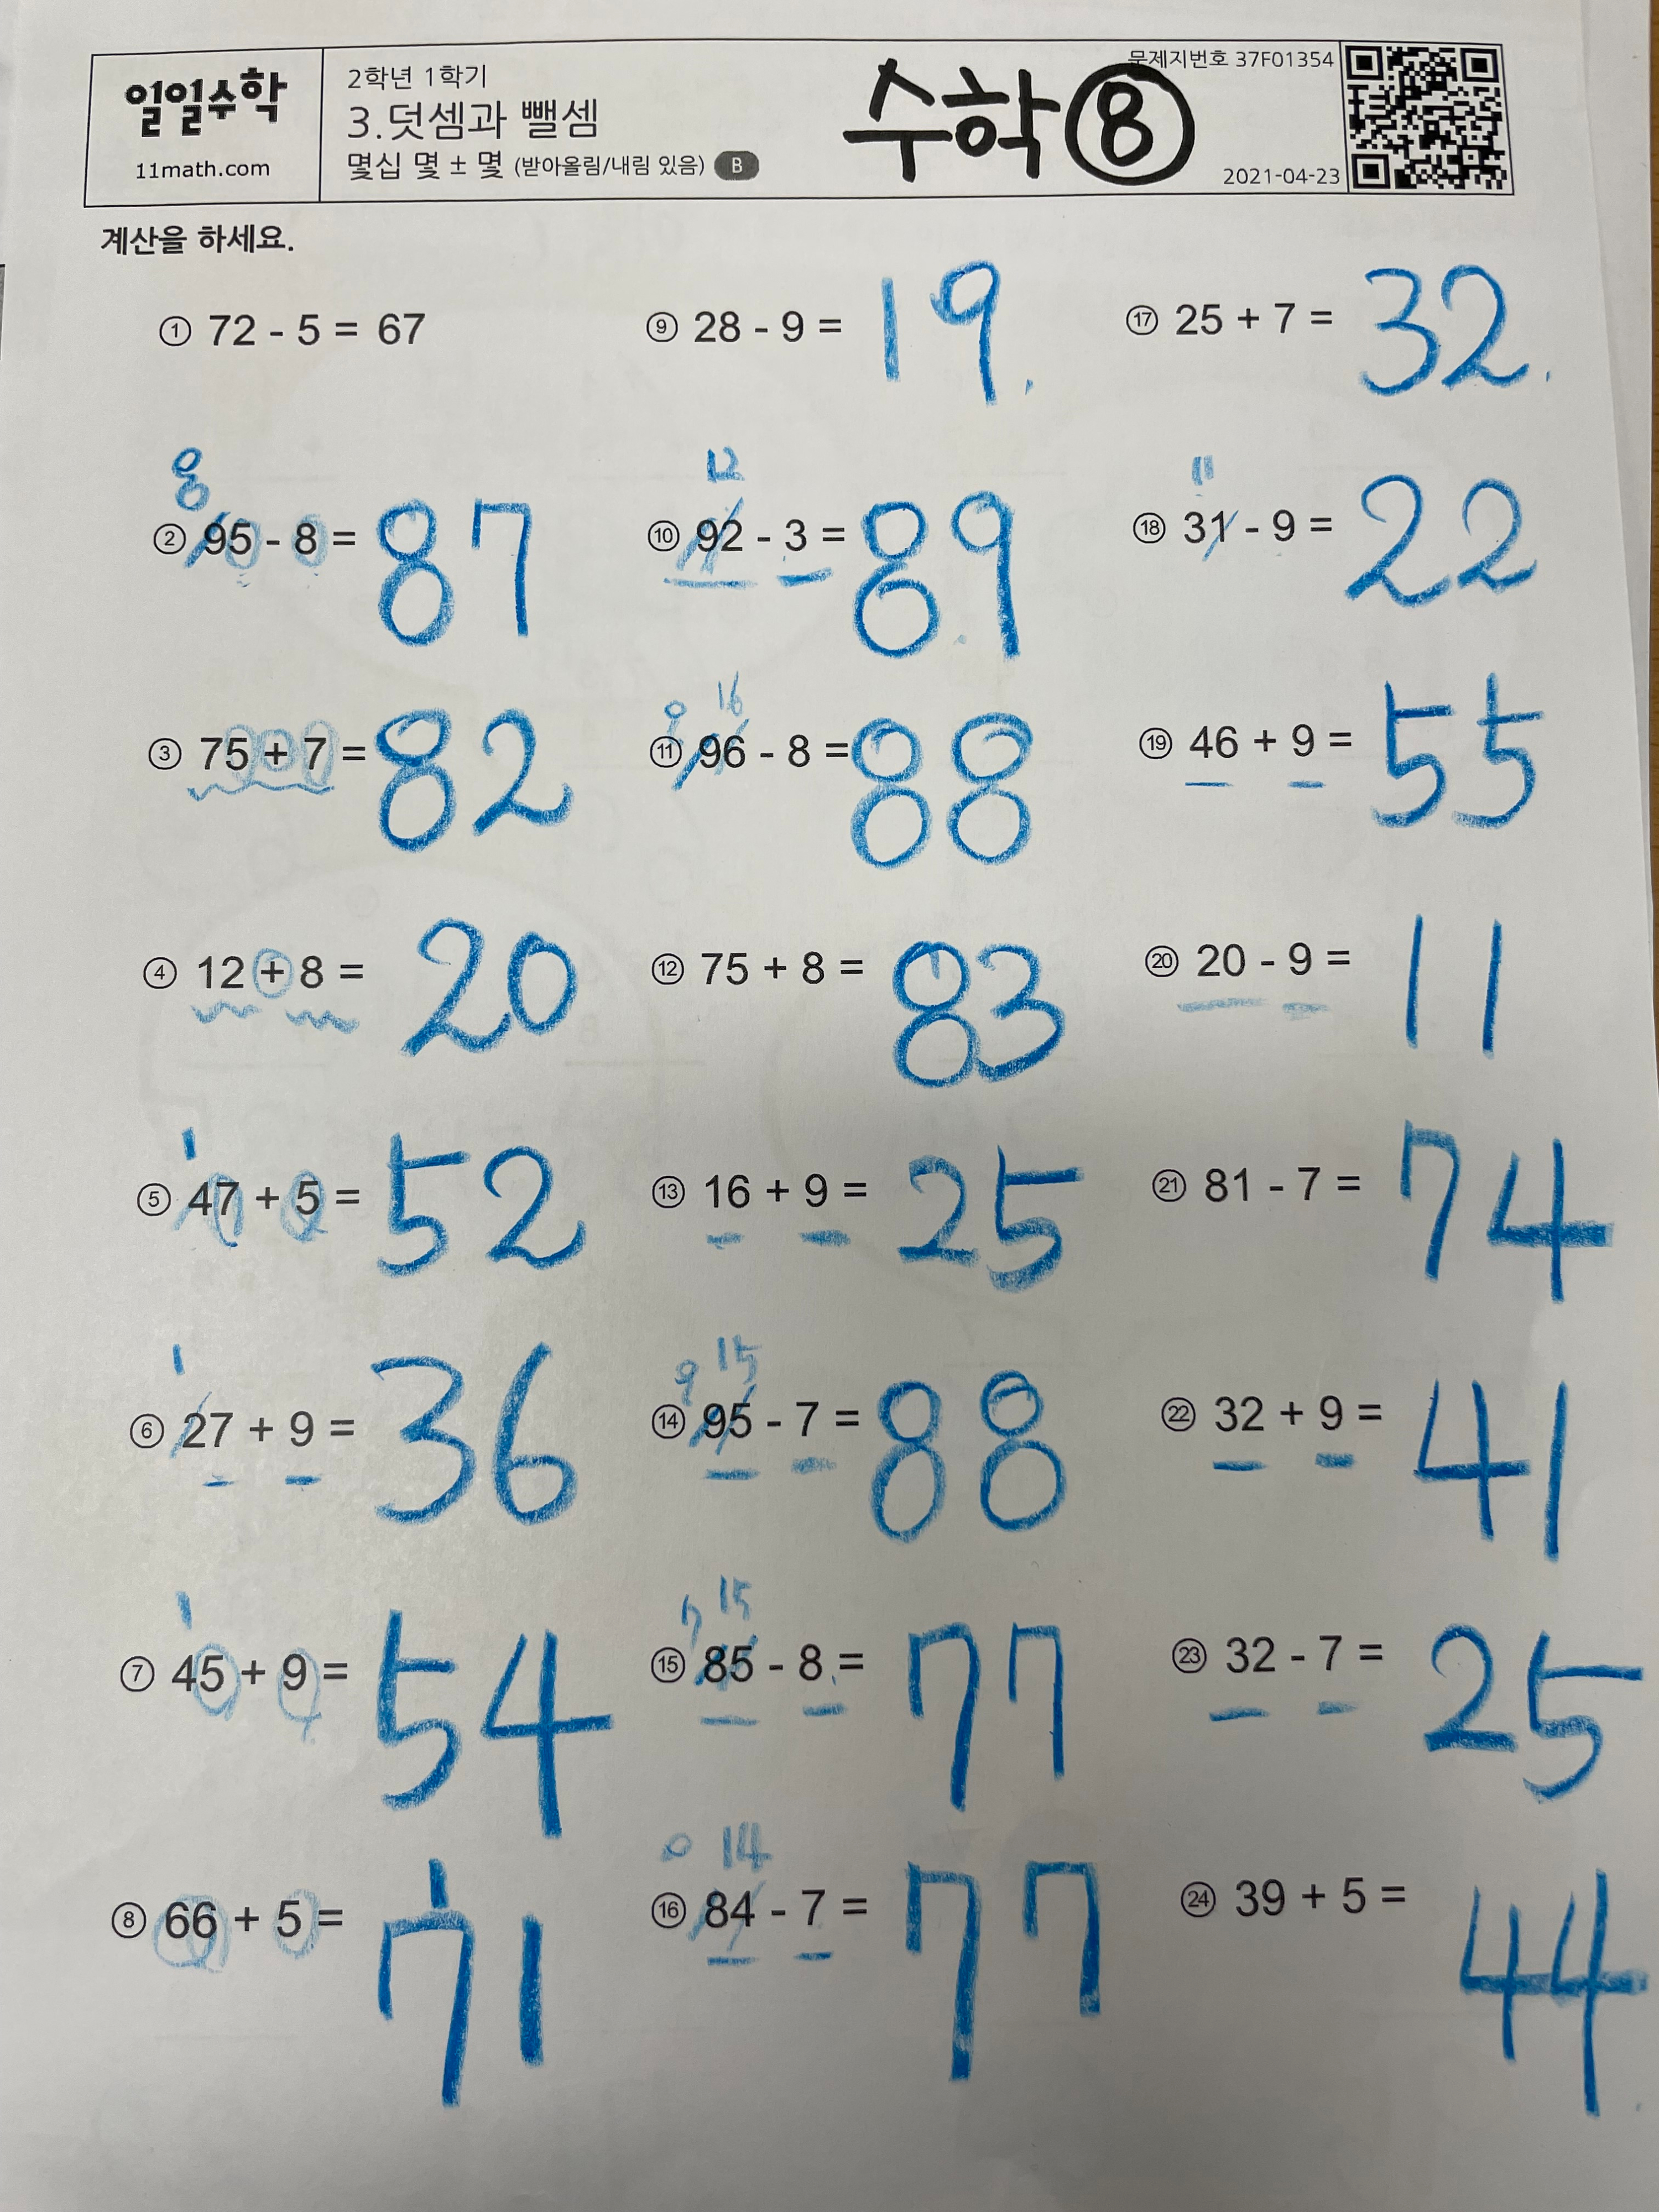 일일수학
11math.com
2학년 1학기
3.덧셈과 뺄셈
몇십 몇 ± 몇 (받아올림/내림 있음) B
수학 ⑧
문제지번호 37F01354
2021-04-23
계산을 하세요.
① 72 - 5 = 67
8
② 95 - 8 = 87
③ 75 + 7 = 82
④ 12 + 8 = 20
1
⑤ 47 + 5 = 52
1
⑥ 27 + 9 = 36
1
⑦ 45 + 9 = 54
1
⑧ 66 + 5 = 71
⑨ 28 - 9 = 19.
12
⑩ 92 - 3 = 89
16
⑪ 96 - 8 = 88
⑫ 75 + 8 = 83
⑬ 16 + 9 = 25
9 15
⑭ 95 - 7 = 88
7 15
⑮ 85 - 8 = 77
14
⑯ 84 - 7 = 77
⑰ 25 + 7 = 32.
11
⑱ 31 - 9 = 22
⑲ 46 + 9 = 55
⑳ 20 - 9 = 11
㉑ 81 - 7 = 74
㉒ 32 + 9 = 41
㉓ 32 - 7 = 25
㉔ 39 + 5 = 44